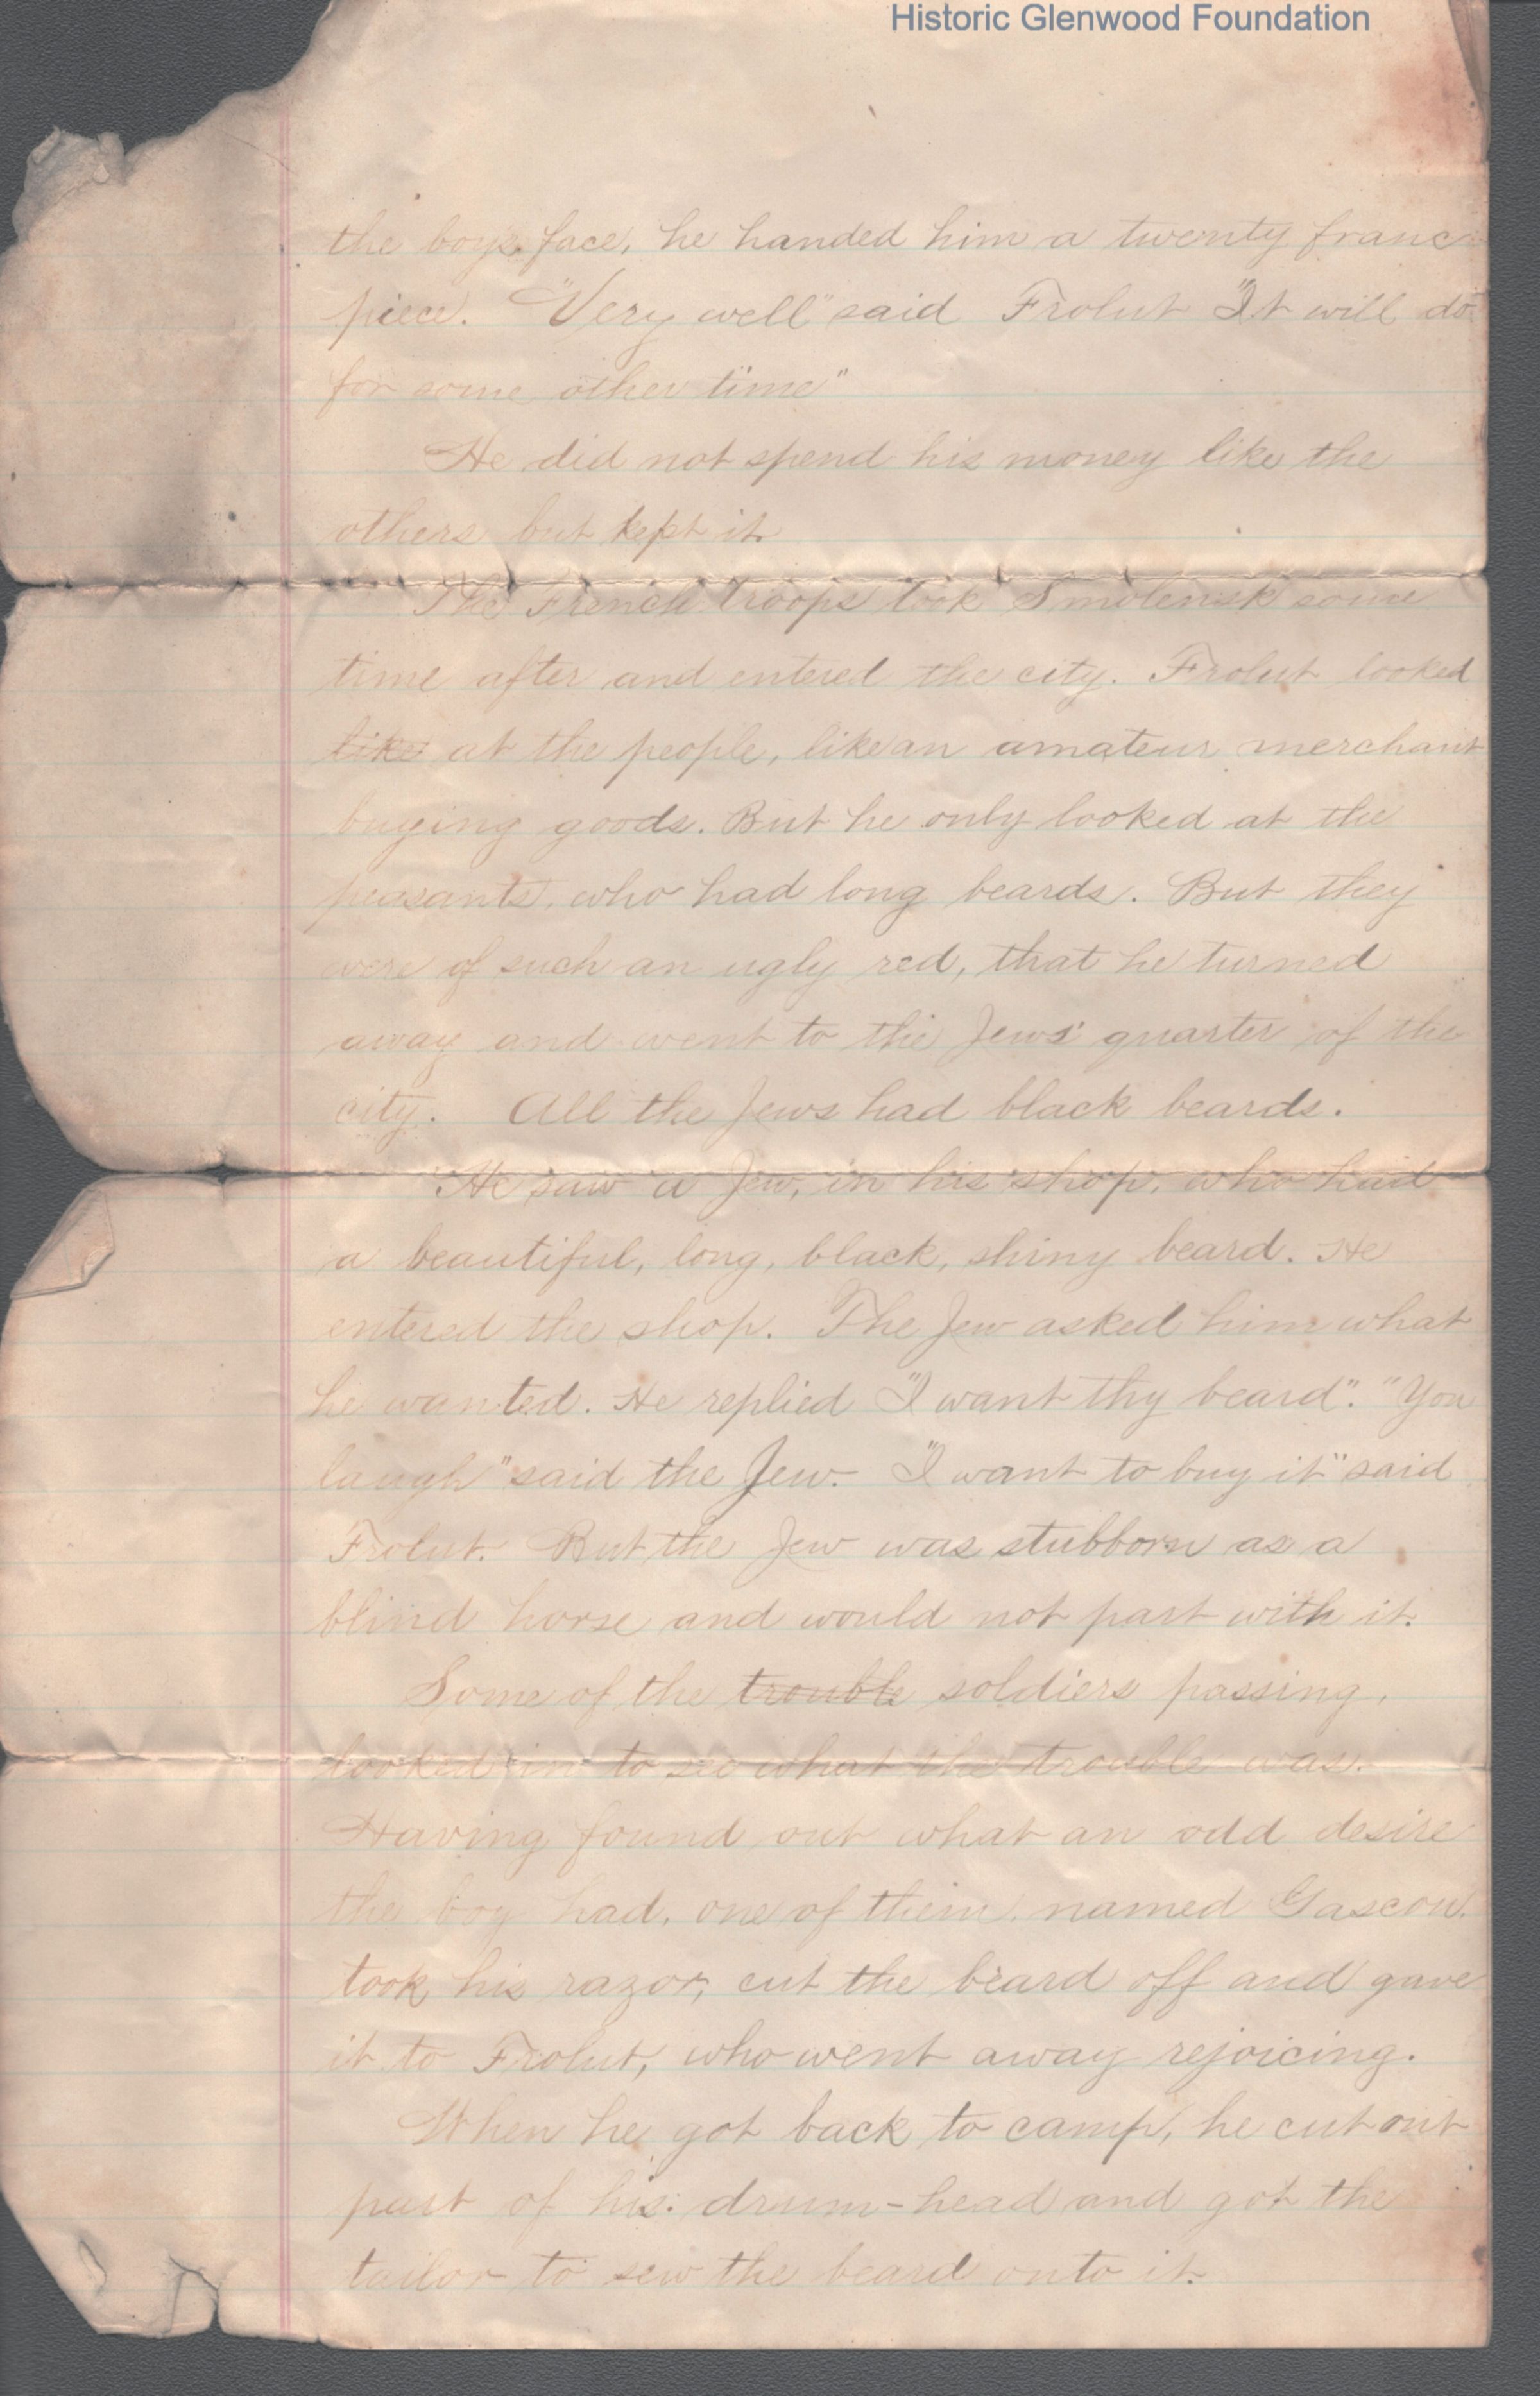 Historic Glenwood Foundation
the boy's face, he handed him a twenty franc
piece. "Very well" said Frolut "It will do
for some other time"
He did not spend his money like the
others but kept it.
The French troops took Smolensk some
time after and entered the city. Frolut looked
like at the people, like an amateur merchant
buying goods. But he only looked at the
peasants, who had long beards. But they
were of such an ugly red, that he turned
away and went to the Jews' quarter of the
city. All the Jews had black beards.
He saw a Jew, in his shop, who had
a beautiful, long, black, shiny beard. He
entered the shop. The Jew asked him what
he wanted. He replied "I want thy beard". "You
laugh" said the Jew. "I want to buy it" said
Frolut. But the Jew was stubborn as a
blind horse and would not part with it.
Some of the trouble soldiers passing,
looked in to see what the trouble was.
Having found out what an odd desire
the boy had, one of them, named Gascon,
took his razor, cut the beard off and gave
it to Frolut, who went away rejoicing.
When he got back to camp, he cut out
part of his drum-head and got the
tailor to sew the beard onto it.